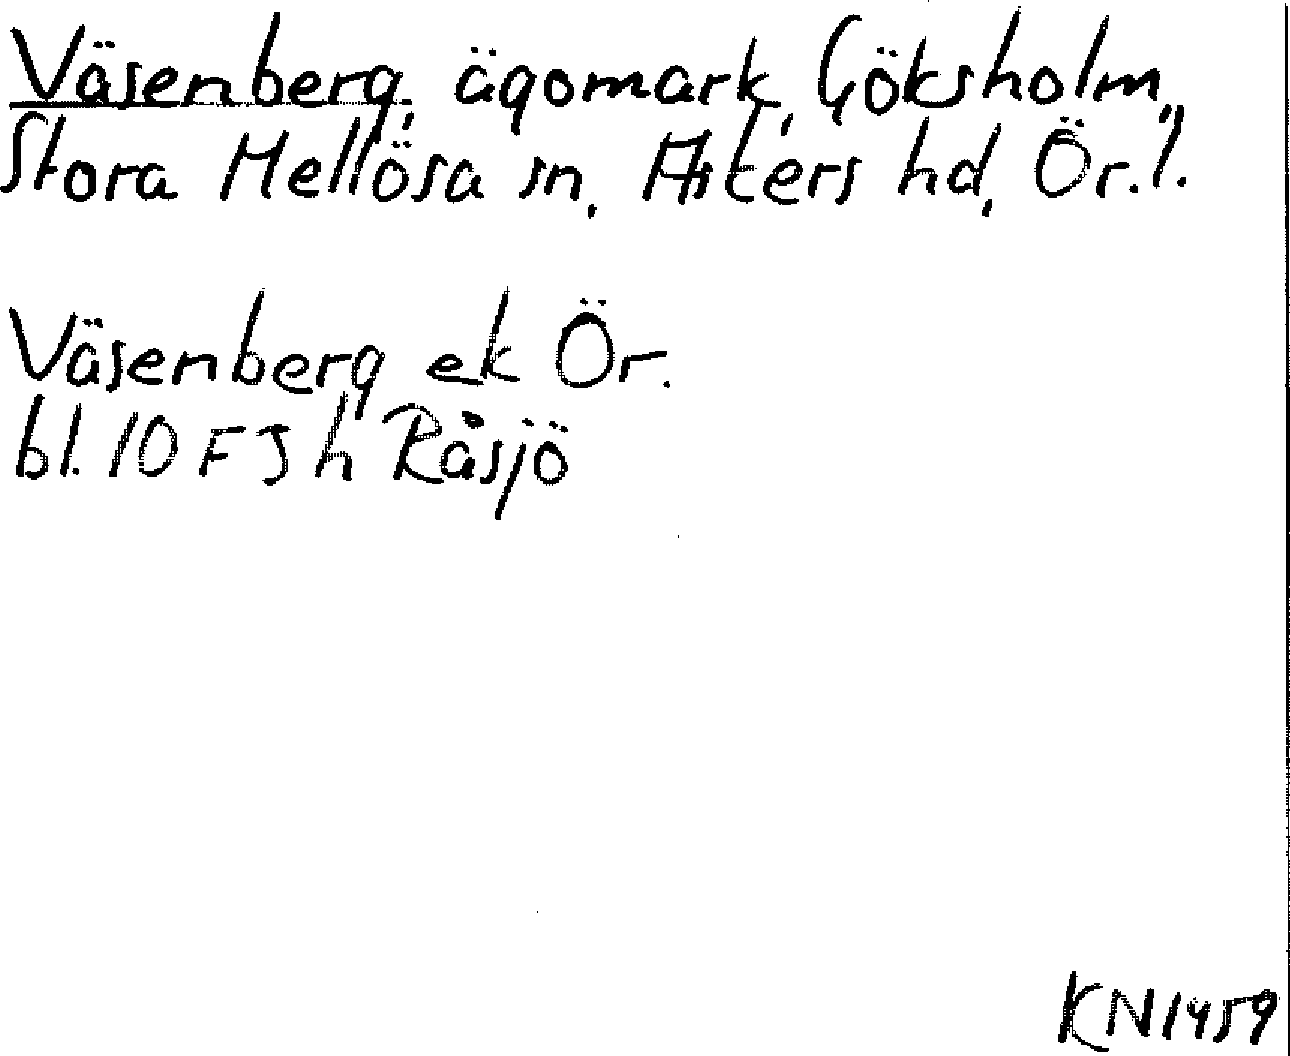 Väsenberg, ägomark, Göksholm,
Stora Mellösa sn, Askers hd, Ör.l.
Väsenberg ek Ör.
bl. 10 F 5 h Råsjö
KN1459